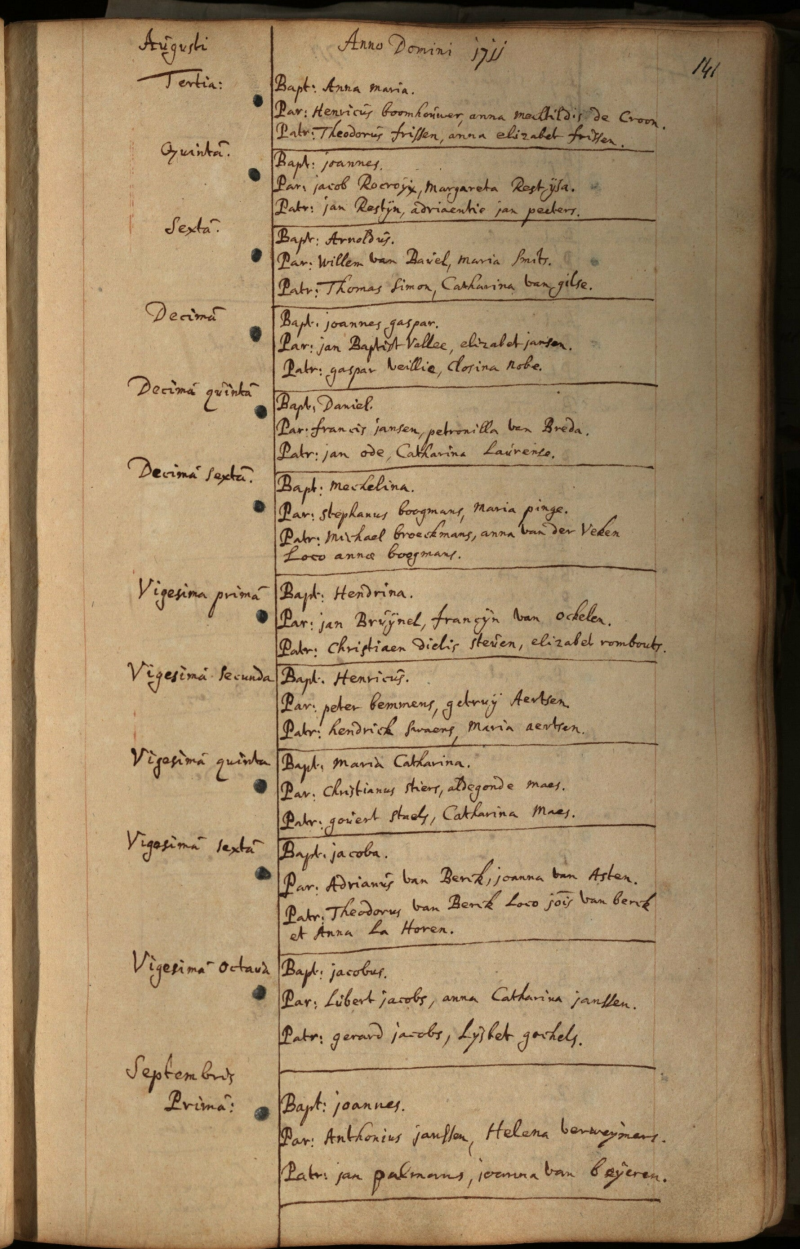 Augusti
Anno Domini 1711
141
Tertia:
Bapt: Anna maria.
Par: Henricus boomhouwer, anna mechildis de Croon.
Patr: Theodorus frissen, anna elizabet frissen.
Quinta.
Bapt: joannes.
Par: jacob Rocroÿx, Margareta Restÿsa.
Patr: jan Restÿn, adriaentie jan peeters.
Sexta.
Bapt: Arnoldus.
Par: Willem van Bavel, Maria Smits.
Patr: Thomas Simon, Catharina van gilse.
Decima
Bapt. joannes gaspar.
Par: jan Baptist Vallee, elizabet jansen.
Patr: gaspar veillie, Closina Nobe.
Decima quinta
Bapt. Daniel.
Par: francis jansen, petronilla van Breda.
Patr: jan ode, Catharina Laurense.
Decima Sexta.
Bapt: Mechelina.
Par: Stephanus boogmans, Maria pinge.
Patr: Michael broeckmans, anna van der Veken
Loco annæ boogmans.
Vigesima prima
Bapt: Hendrina.
Par: jan Bruÿnel, francÿn van Ockelen.
Patr: Christiaen dielis steven, elizabet rombouts.
Vigesima Secunda
Bapt. Henricus.
Par: peter bemmens, getruÿ Aertsen.
Patr: hendrick swaens, Maria aertsen.
Vigesima quinta
Bapt. Maria Catharina.
Par: Christianus Stiers, aldegonde maes.
Patr: govert stuels, Catharina Maes.
Vigesima Sexta
Bapt. jacoba.
Par: Adrianus van Berck, joanna van Asten.
Patr: Theodorus van Berck Loco jois van berck
et Anna La Horen.
Vigesima Octava
Bapt: jacobus.
Par: Lubert jacobs, anna Catharina janssen.
Patr: gerard jacobs, Lÿsbet gochels.
Septembris
Prima:
Bapt: joannes.
Par: Anthonius janssen, Helena verweÿmers.
Patr: jan palmans, joanna van beÿeren.